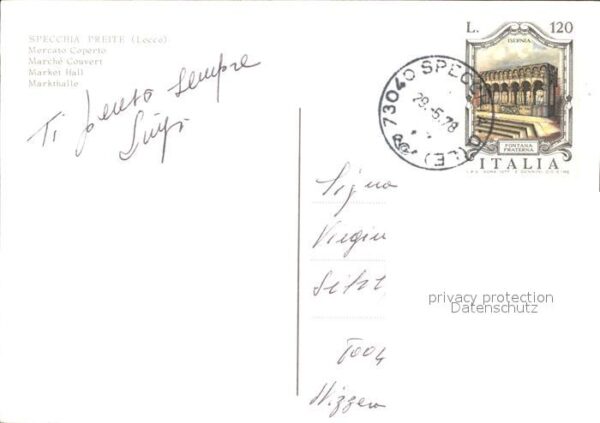 SPECCHIA PREITE (Lecce)
Mercato Coperto
Marché Couvert
Market Hall
Markthalle
Ti penso sempre
Luigi
L. 120
ISERNIA
FONTANA
FRATERNA
ITALIA
73040 SPECCHIA (LE)
29.-5.78
Signa
Virgin
privacy protection
Datenschutz